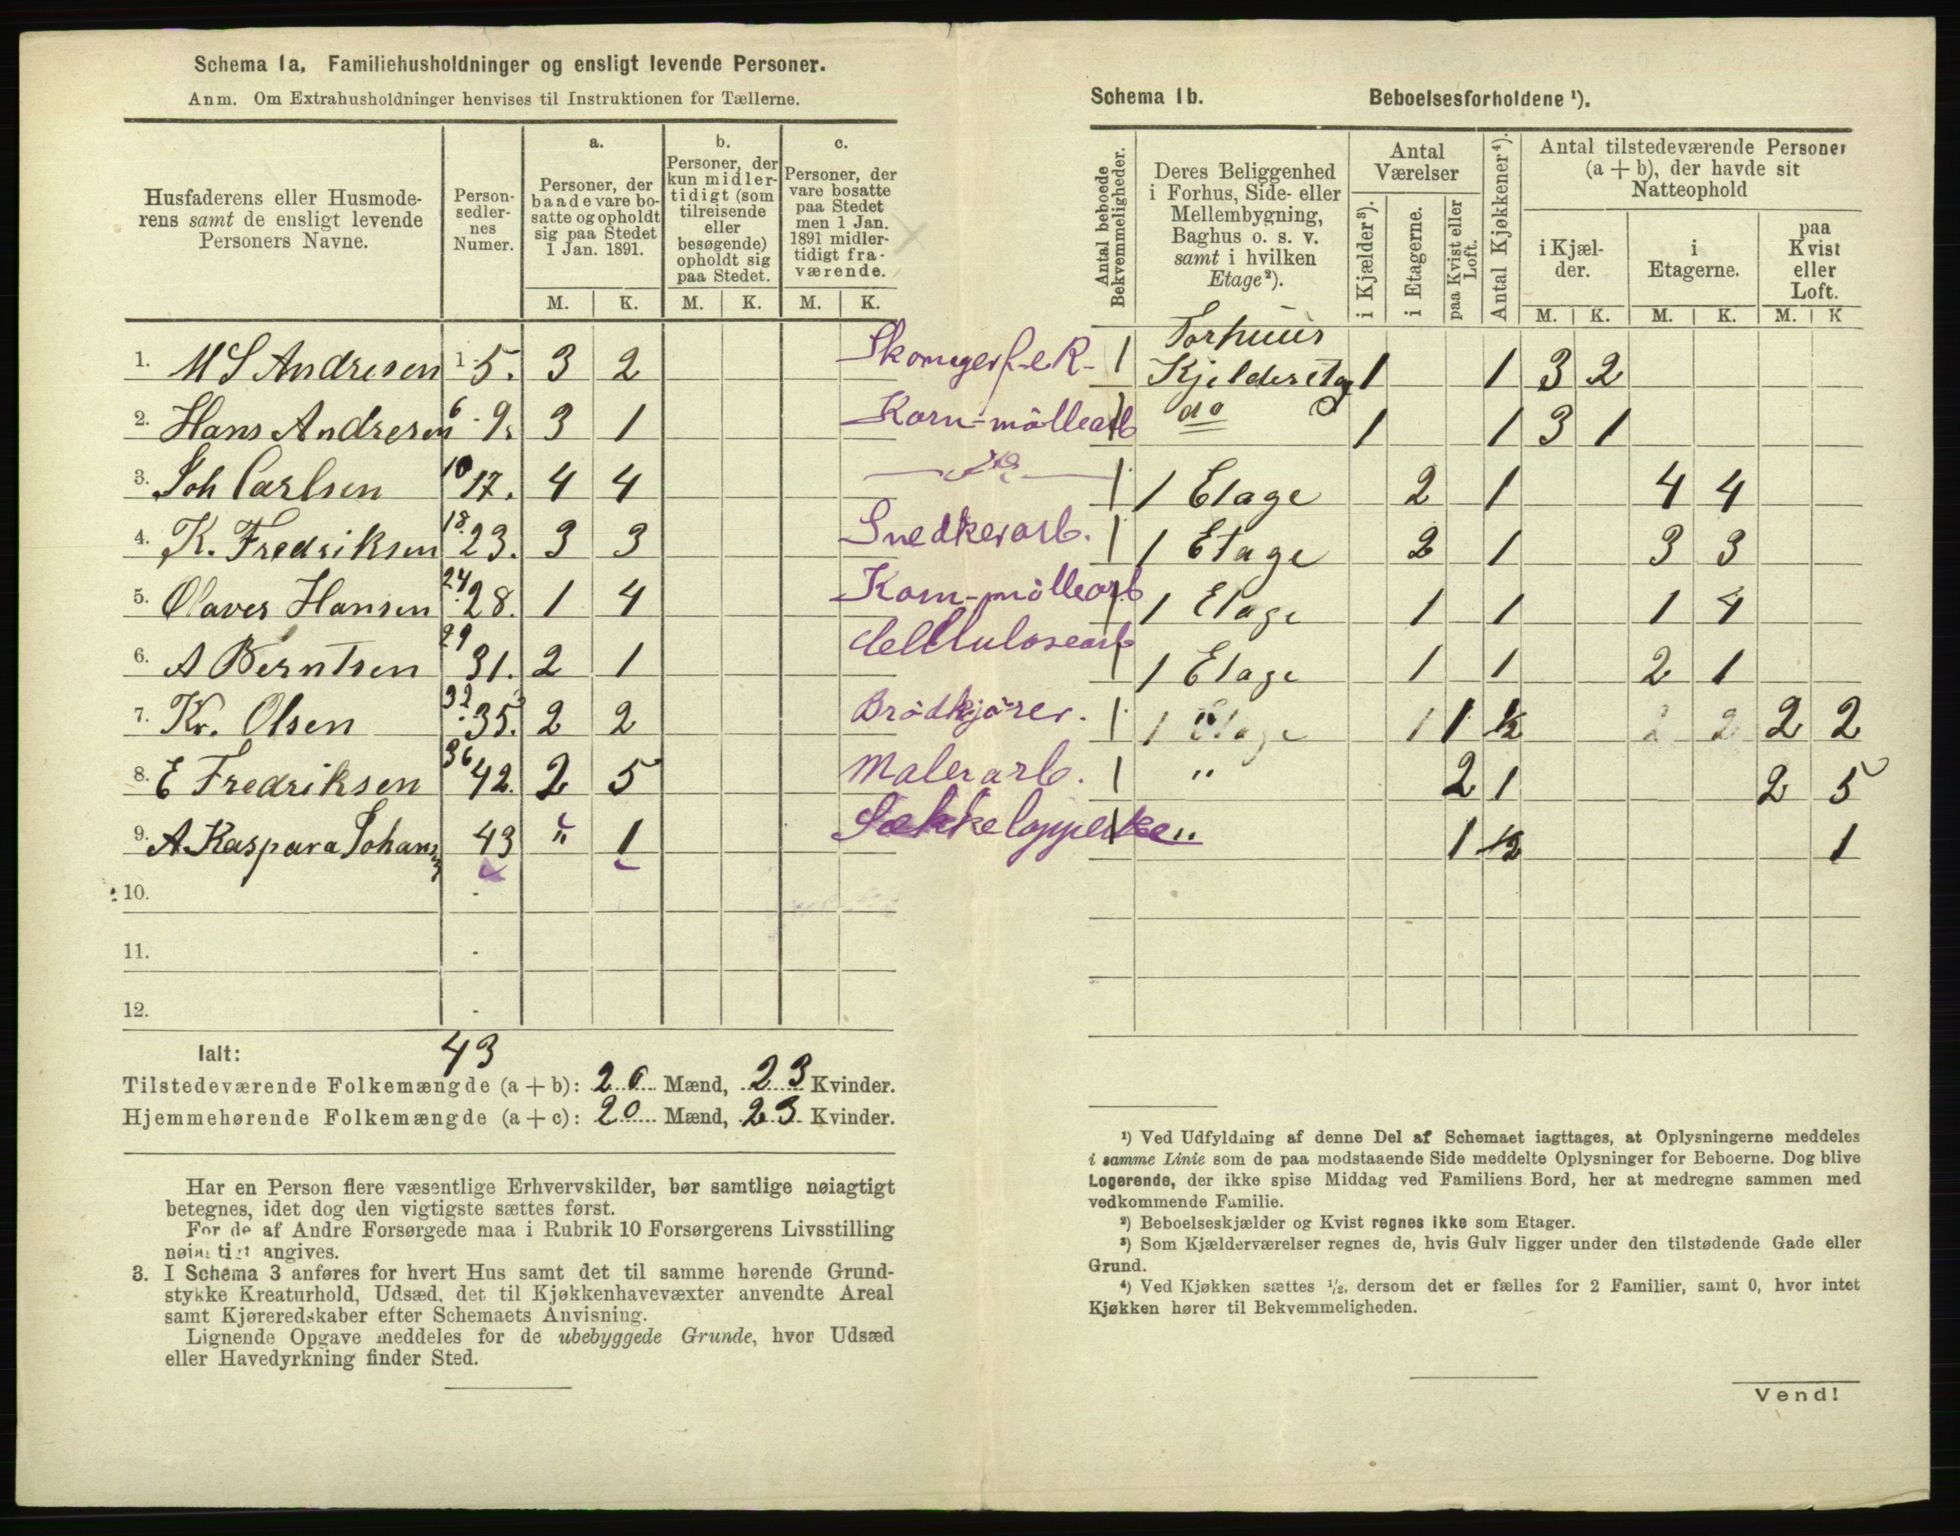 Schema 1a. Familiehusholdninger og ensligt levende Personer.
Anm. Om Extrahusholdninger henvises til Instruktionen for Tællerne.
Husfaderens eller Husmode-
rens samt de ensligt levende
Personers Navne.
Person-
sedler-
nes
Numer.
a.
Personer, der
baade vare bo-
satte og opholdt
sig paa Stedet
1 Jan. 1891.
b.
Personer, der
kun midler-
tidigt (som
tilreisende
eller
besøgende)
opholdt sig
paa Stedet.
c.
Personer, der
vare bosatte
paa Stedet
men 1 Jan.
1891 midler-
tidigt fra-
værende.
M. K. M. K. M. K.
1. M S Andresen 1-5. 3 2
2. Hans Andresen 6-9. 3 1 Korn-mölle arb
3. Joh Carlsen 10 17. 4 4 do
4. K. Fredriksen 18. 23. 3 3 Snedkerarb.
5. Olaves Hansen 24 28. 1 4 Korn-möllearb
6. A Berntsen 29 31. 2 1 Cellulosearb
7. Kr. Olsen 32 35. 2 2 Brödkjörer.
8. E Fredriksen 36 42. 2 5 Malerarb.
9. A Kaspara Johans 43 " 1
10.
11.
12.
Ialt: 43
Tilstedeværende Folkemængde (a + b): 20 Mænd, 23 Kvinder.
Hjemmehørende Folkemængde (a + c): 20 Mænd, 23 Kvinder.
Har en Person flere væsentlige Erhvervskilder, bør samtlige nøiagtigt
betegnes, idet dog den vigtigste sættes først.
For de af Andre Forsørgede maa i Rubrik 10 Forsørgerens Livsstilling
nøiagtigt angives.
3. I Schema 3 anføres for hvert Hus samt det til samme hørende Grund-
stykke Kreaturhold, Udsæd, det til Kjøkkenhavevæxter anvendte Areal
samt Kjøreredskaber efter Schemaets Anvisning.
Lignende Opgave meddeles for de ubebyggede Grunde, hvor Udsæd
eller Havedyrkning finder Sted.
Schema 1b. Beboelsesforholdene ¹).
Antal beboede
Bekvemmeligheder.
Deres Beliggenhed
i Forhus, Side- eller
Mellembygning,
Baghus o. s. v.
samt i hvilken
Etage ²).
Antal
Værelser
i Kjælder ³).
i Etagerne.
paa Kvist eller
Loft.
Antal Kjøkkener ⁴).
Antal tilstedeværende Personer
(a + b), der havde sit
Natteophold
i Kjæl-
der.
i
Etagerne.
paa
Kvist
eller
Loft.
M. K. M. K. M. K
Forhuus
1 Kjelderetag 1 1 3 2
1 do 1 1 3 1
1 1 Etage 2 1 4 4
1 1 Etage 2 1 3 3
1 1 Etage 1 1 1 4
1 1 Etage 1 1 2 1
1 1 Etage 1 1 ½ 2 2 2 2
1 " 2 1 2 5
1 " 1 ½ 1
¹) Ved Udfyldning af denne Del af Schemaet iagttages, at Oplysningerne meddeles
i samme Linie som de paa modstaaende Side meddelte Oplysninger for Beboerne. Dog blive
Logerende, der ikke spise Middag ved Familiens Bord, her at medregne sammen med
vedkommende Familie.
²) Beboelseskjælder og Kvist regnes ikke som Etager.
³) Som Kjælderværelser regnes de, hvis Gulv ligger under den tilstødende Gade eller
Grund.
⁴) Ved Kjøkken sættes ½, dersom det er fælles for 2 Familier, samt 0, hvor intet
Kjøkken hører til Bekvemmeligheden.
Vend!